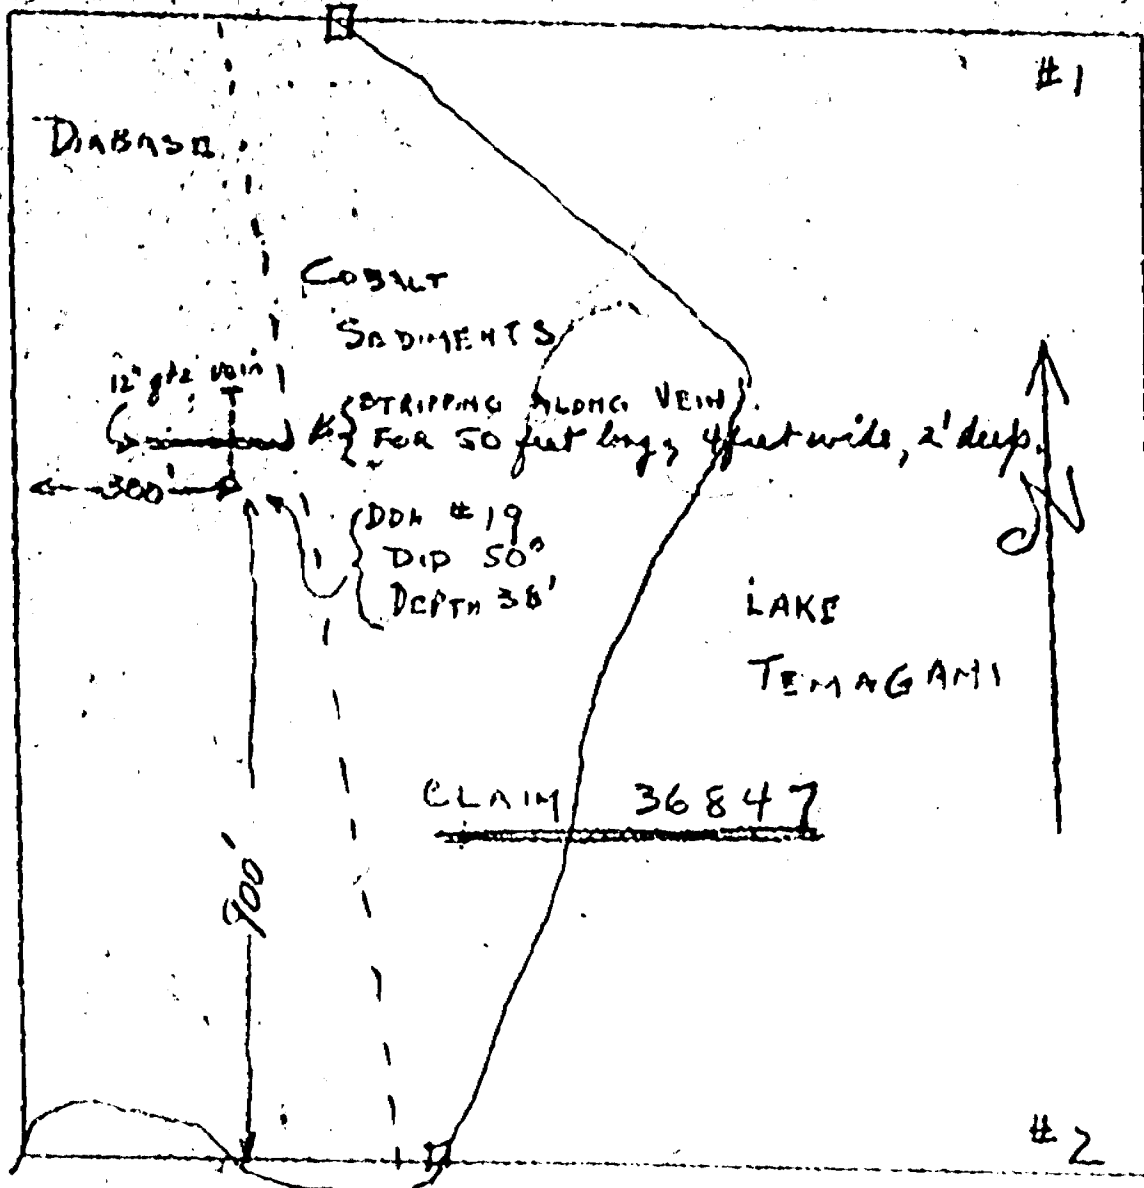 #1
DIABASE
COBALT
SEDIMENTS
12" qtz vein
STRIPPING ALONG VEIN
FOR 50 feet long, 4 feet wide, 2' deep.
300'
N
DDH #19
DIP 50°
DEPTH 38'
LAKE
TEMAGAMI
CLAIM 36847
900'
#2